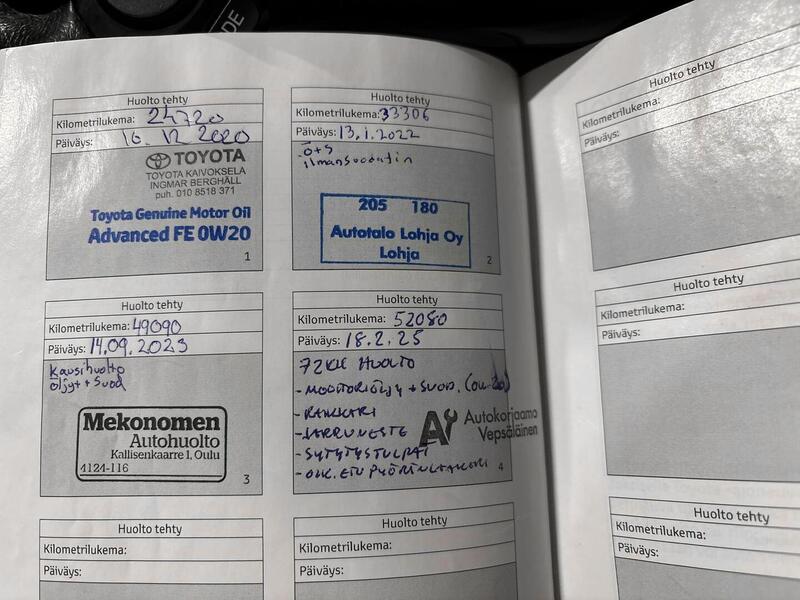 DE
Huolto tehty
Kilometrilukema: 24720
Päiväys: 16.12 2020
TOYOTA
TOYOTA KAIVOKSELA
INGMAR BERGHÄLL
puh. 010 8518 371
Toyota Genuine Motor Oil
Advanced FE 0W20
1
Huolto tehty
Kilometrilukema: 33306
Päiväys: 13.1.2022
Ö+S
ilmansuodatin
205 180
Autotalo Lohja Oy
Lohja
2
Huolto tehty
Kilometrilukema: 49090
Päiväys: 14.09.2023
Kausihuolto
Öljyt + Suod
Mekonomen
Autohuolto
Kallisenkaarre 1, Oulu
4124-116
3
Huolto tehty
Kilometrilukema: 52080
Päiväys: 18.2.25
72KK HUOLTO
- MOOTTORIÖLJY + SUOD.
- RAKKARI
- JARRUNESTE
- SYTYTYSTULPAT
- OIK. ETU PYÖRÄNLAAKERI
Autokorjaamo
Vepsäläinen
4
Huolto tehty
Kilometrilukema:
Päiväys:
Huolto tehty
Kilometrilukema:
Päiväys:
Huolto tehty
Kilometrilukema:
Päiväys:
Huolto tehty
Kilometrilukema:
Päiväys:
Huolto tehty
Kilometrilukema:
Päiväys: